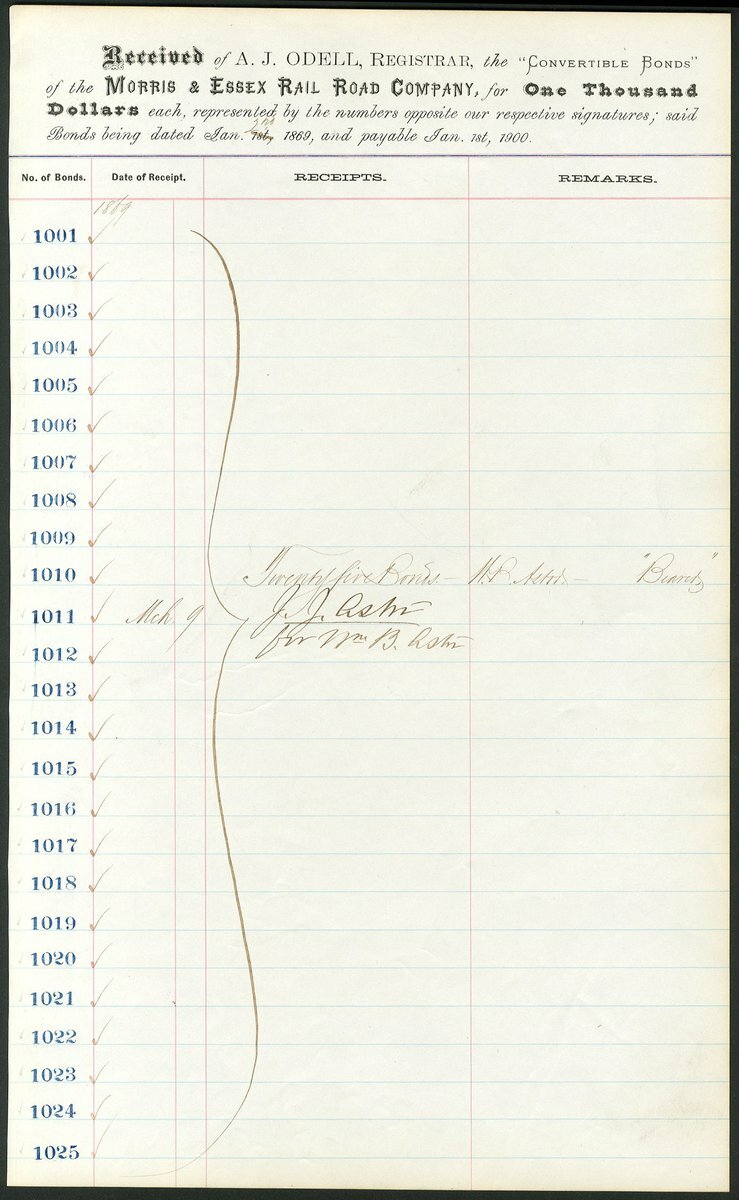 Received of A. J. ODELL, REGISTRAR, the "CONVERTIBLE BONDS"
of the MORRIS & ESSEX RAIL ROAD COMPANY, for One Thousand
Dollars each, represented by the numbers opposite our respective signatures; said
2nd
Bonds being dated Jan. 1st, 1869, and payable Jan. 1st, 1900.
No. of Bonds. Date of Receipt. RECEIPTS. REMARKS.
1869
1001
1002
1003
1004
1005
1006
1007
1008
1009
1010 Twenty five Bonds. — W. B. Astor. — "Bearer"
1011 Mch. 9 J. J. Astor
1012 for Wm B. Astor
1013
1014
1015
1016
1017
1018
1019
1020
1021
1022
1023
1024
1025